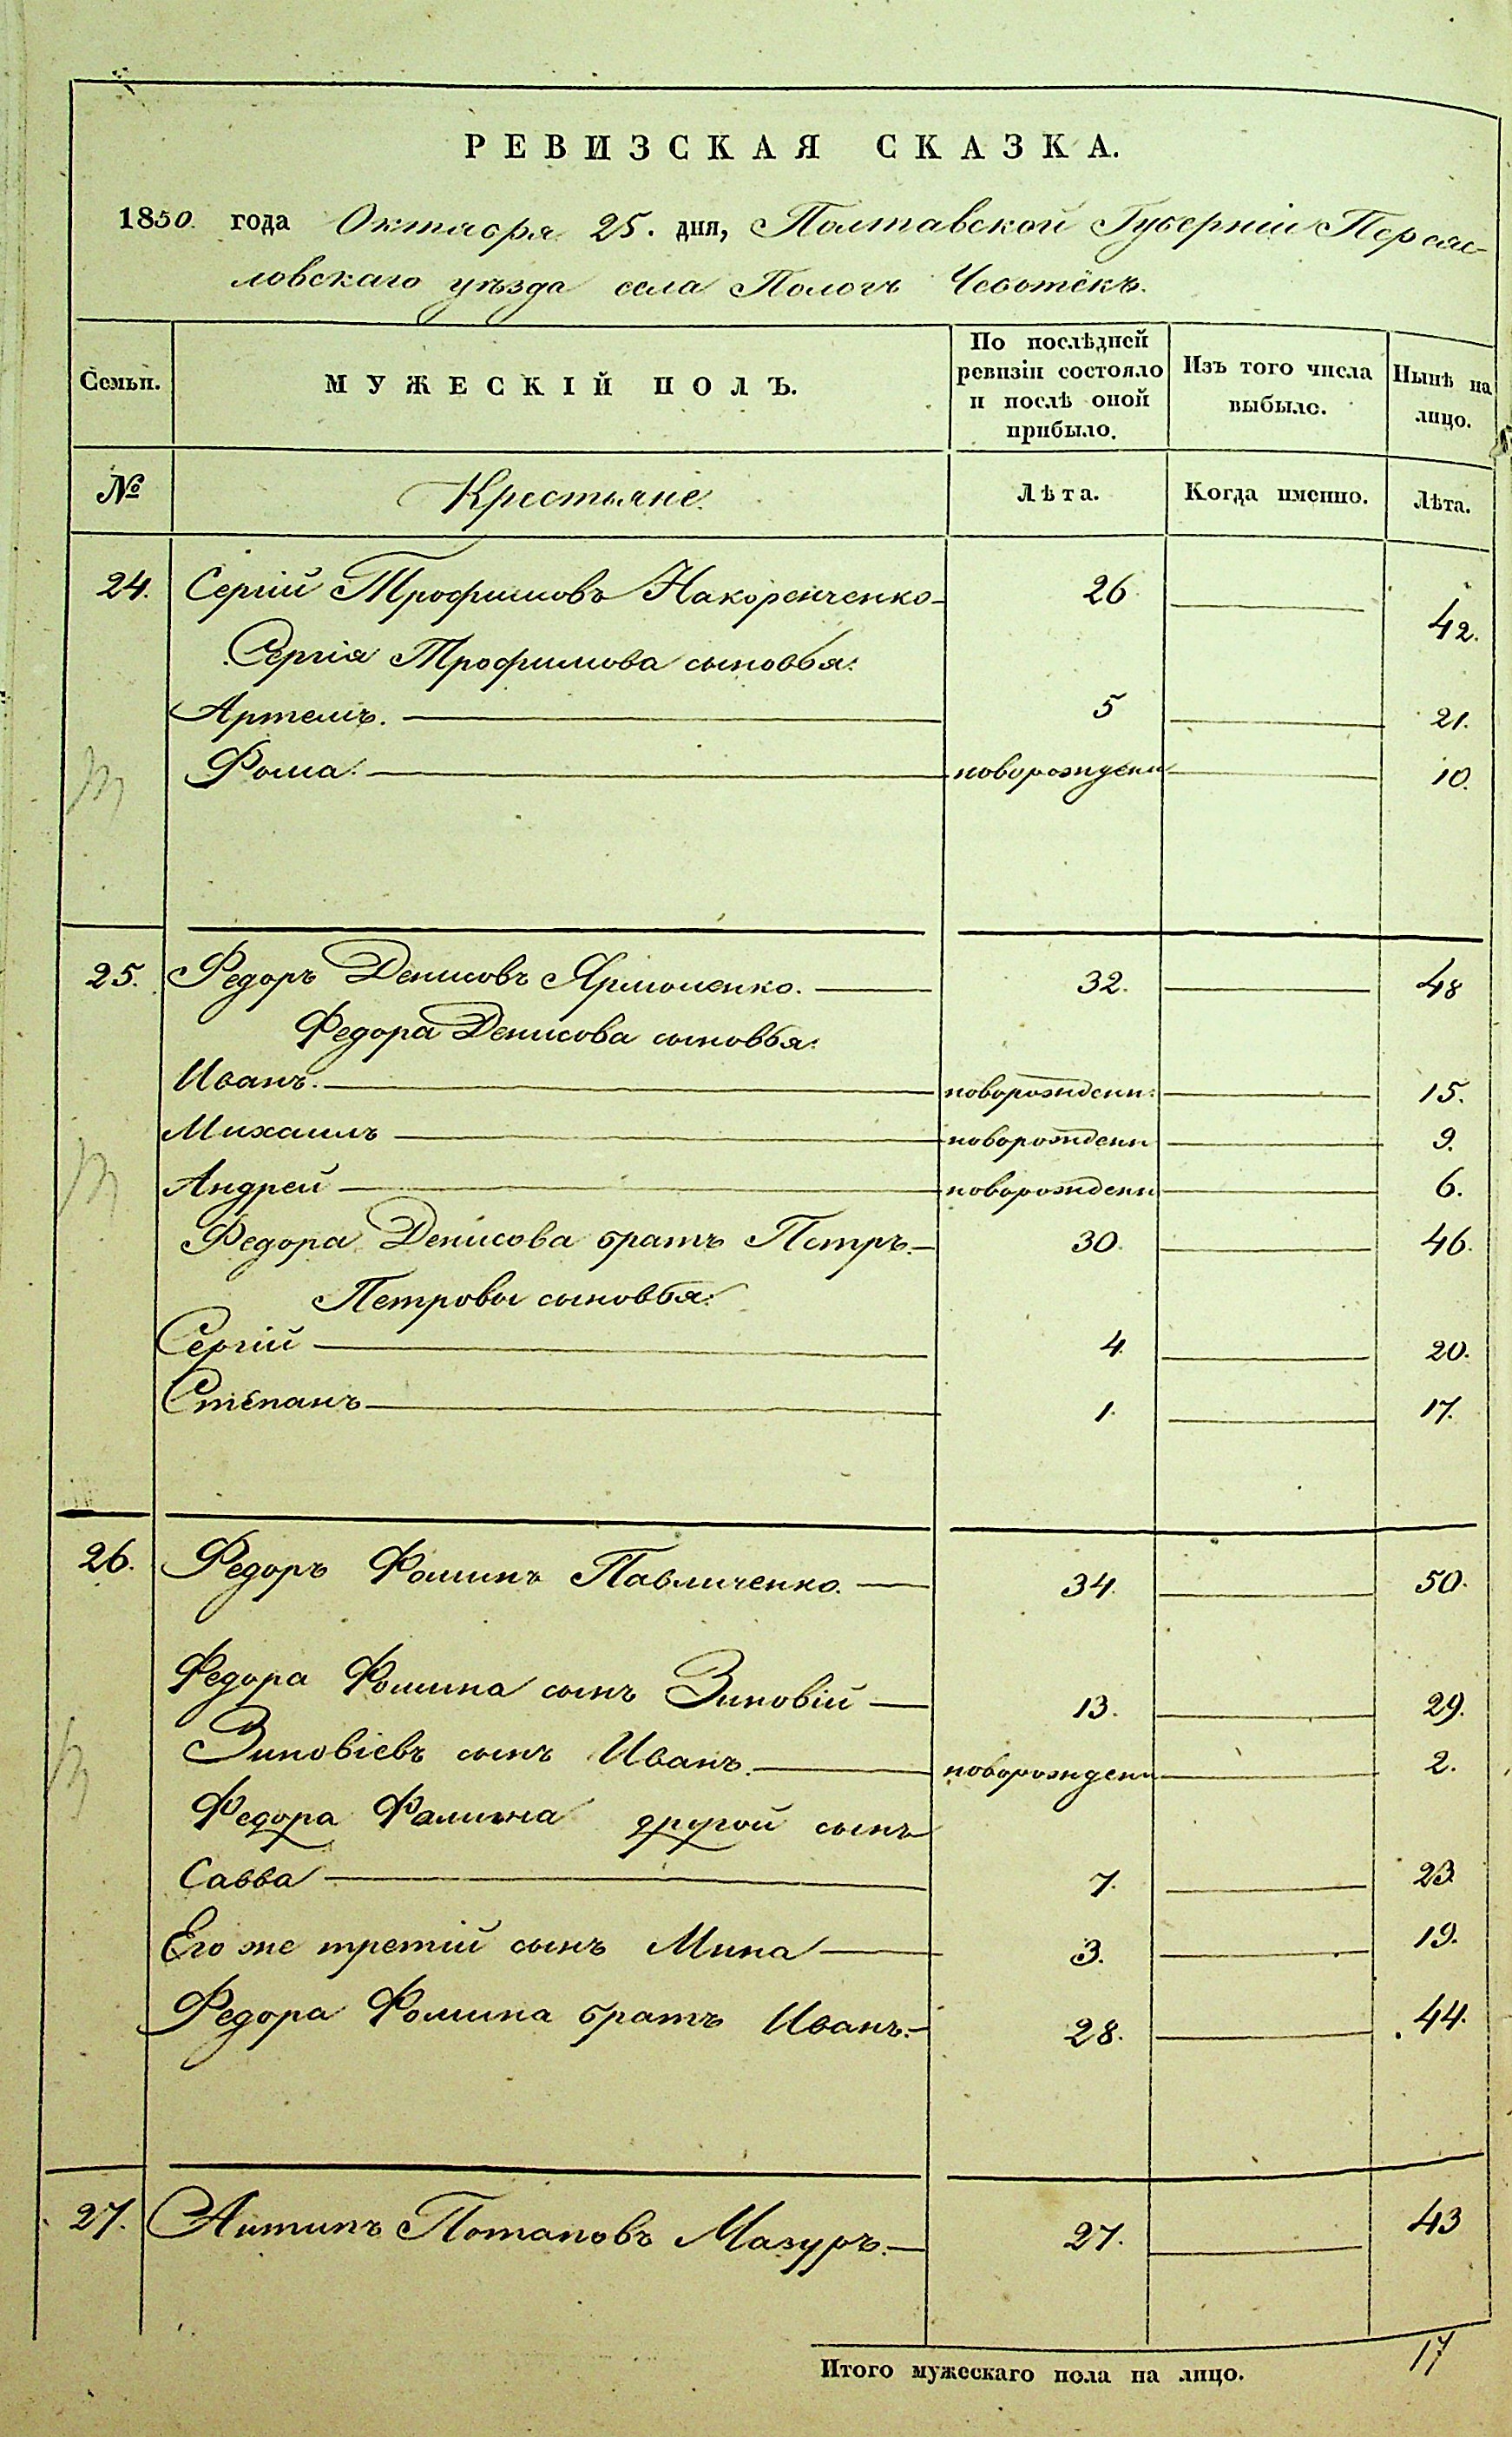 РЕВИЗСКАЯ СКАЗКА.
1850. года Октября 25. дня, Полтавской Губерніи Переяс-
ловскаго уѣзда села Пологъ Чеботёкъ.
Семьи. МУЖЕСКІЙ ПОЛЪ. По послѣдней ревизіи состояло и послѣ оной прибыло. Изъ того числа выбыло. Нынѣ на лицо.
№ Крестьяне. Лѣта. Когда именно. Лѣта.
24. Сергій Трофимовъ Накоренченко 26 42.
Сергія Трофимова сыновья:
Артемъ. 5 21.
Фома. новорожденн 10.
25. Федоръ Денисовъ Ярмоленко. 32. 48
Федора Денисова сыновья:
Иванъ. новорожденн: 15.
Михаилъ новорожденн 9.
Андрей новорожденн 6.
Федора Денисова братъ Петръ. 30. 46.
Петровы сыновья:
Сергій 4 20.
Степанъ 1. 17.
26. Федоръ Фоминъ Павличенко. 34. 50.
Федора Фомина сынъ Зиновій 13. 29.
Зиновіевъ сынъ Иванъ. новорожденн 2.
Федора Фамина другой сынъ
Савва 7. 23
Его же третій сынъ Мина 3. 19.
Федора Фомина братъ Иванъ. 28. 44.
27. Антипъ Потаповъ Мазуръ. 27. 43
Итого мужескаго пола на лицо. 17